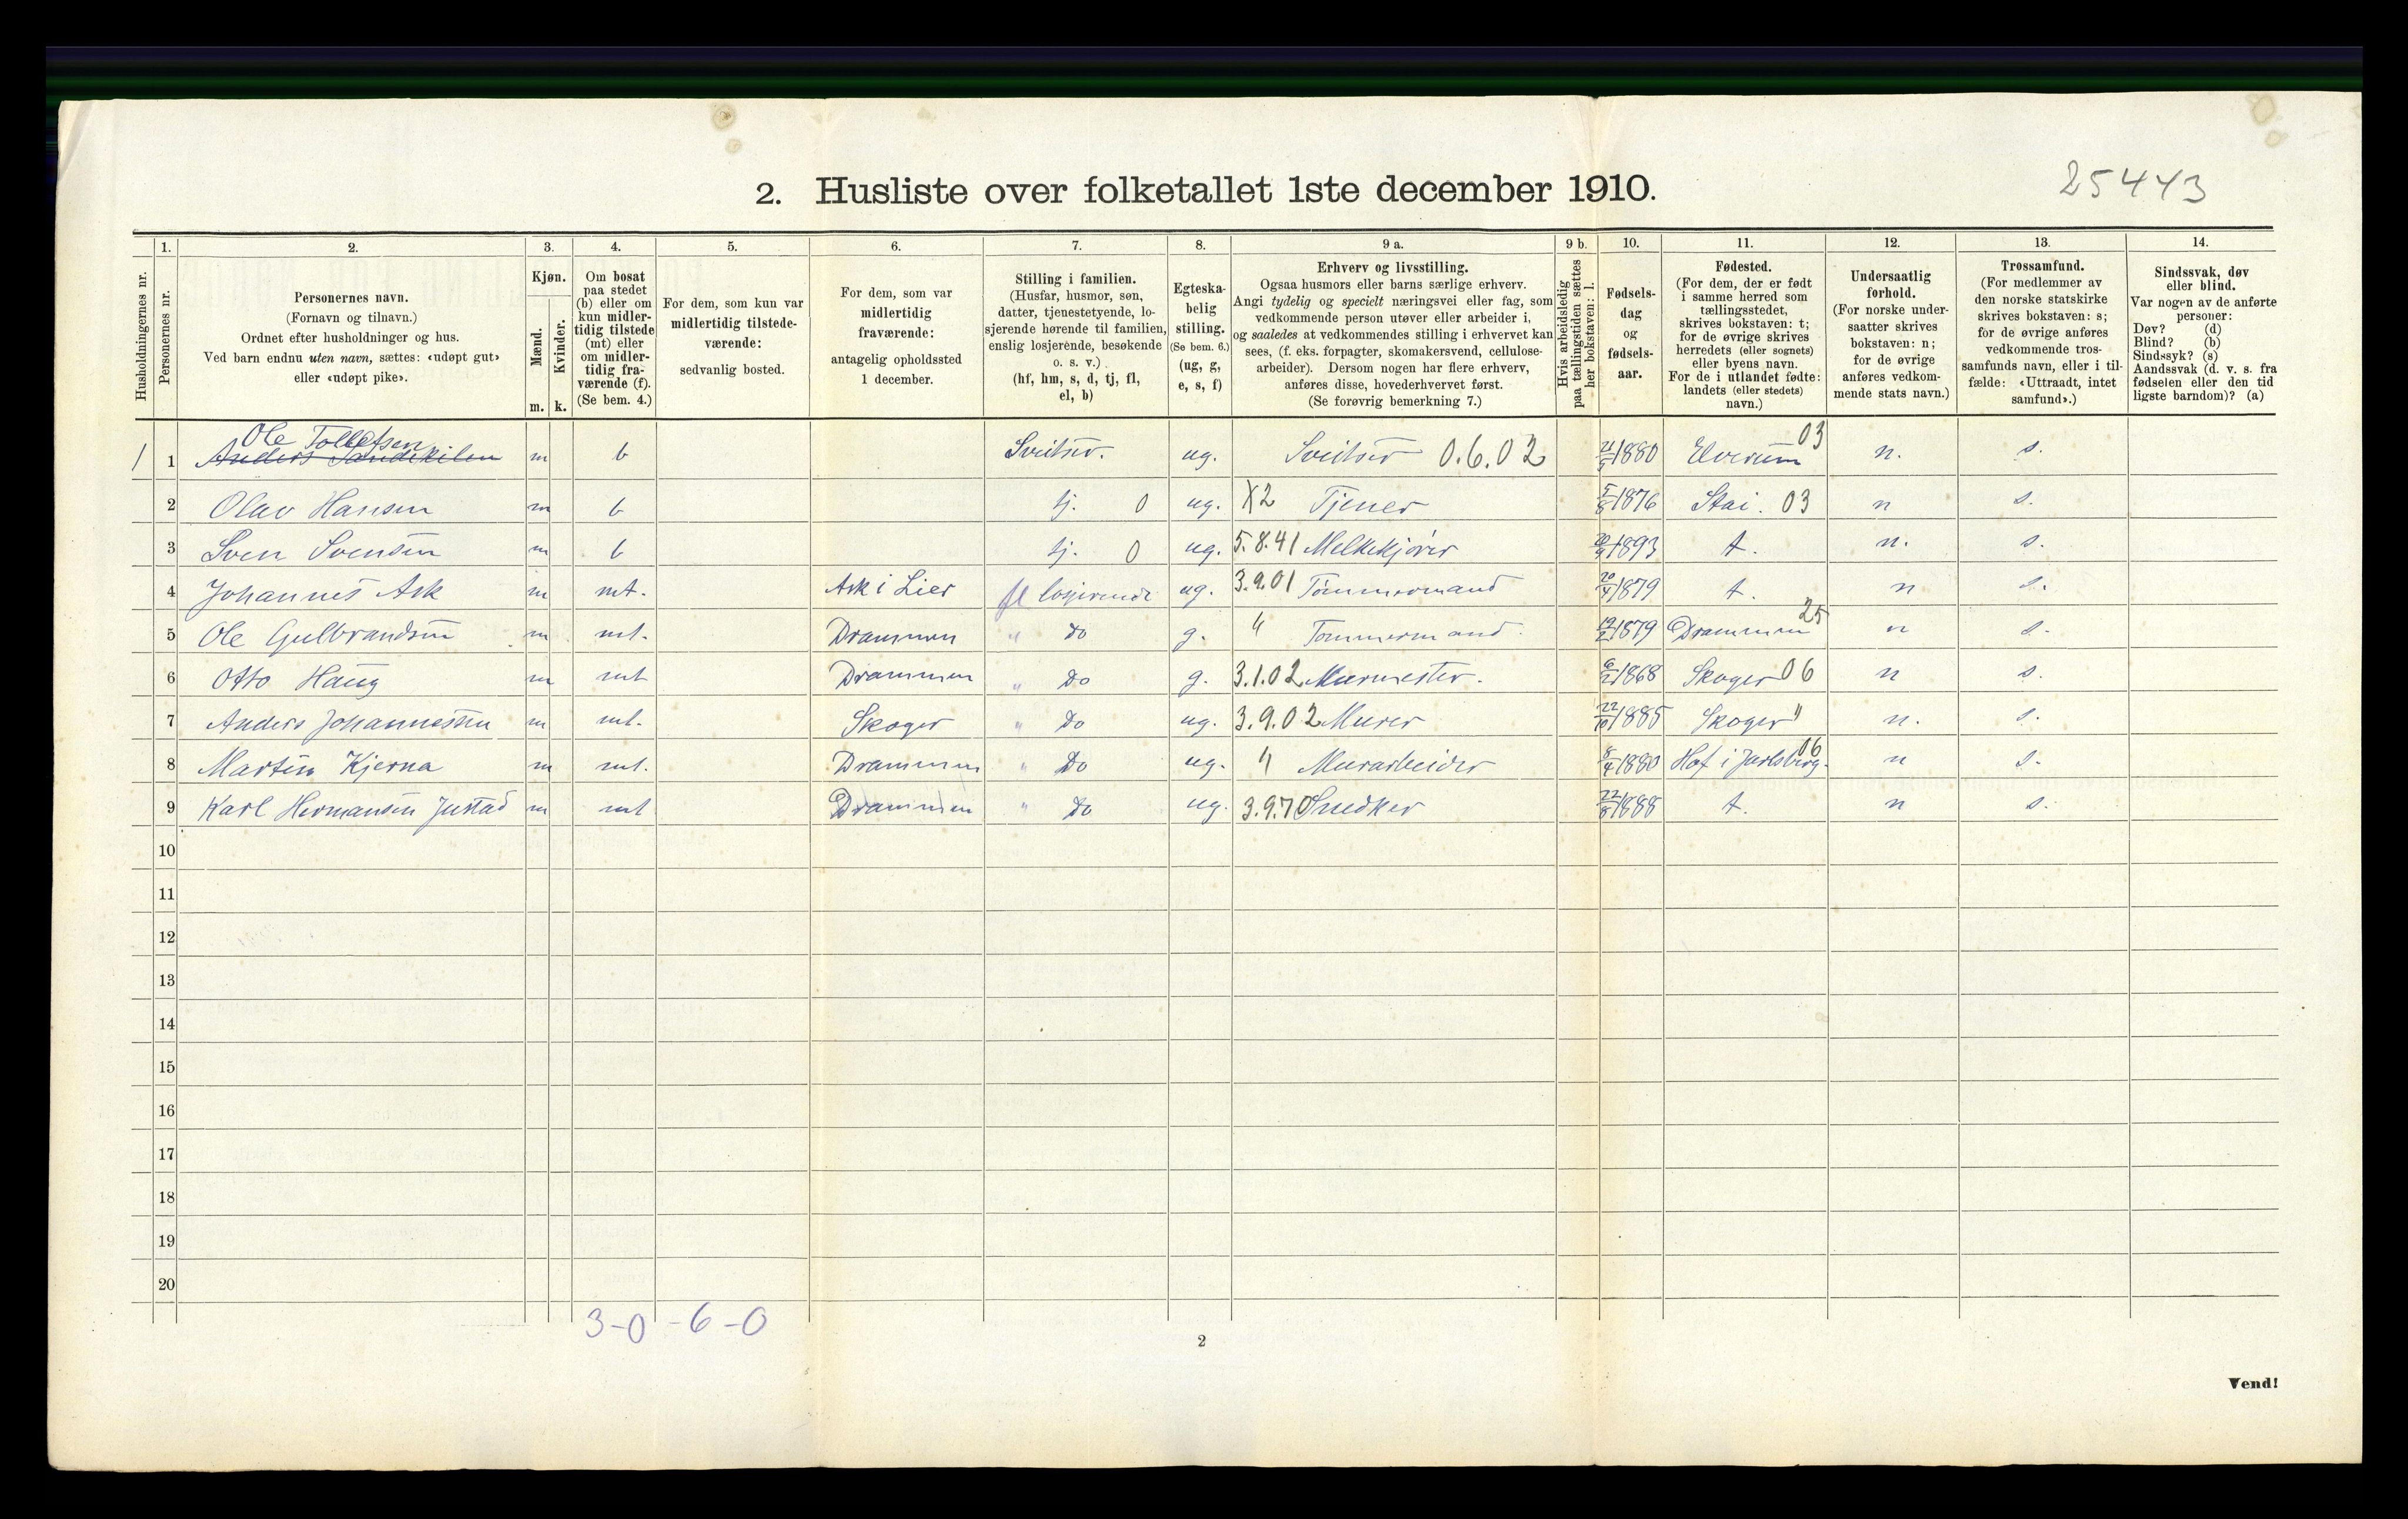 25443
2. Husliste over folketallet 1ste december 1910.
Husholdningernes nr.
1.
Personernes nr.
2.
Personernes navn.
(Fornavn og tilnavn.)
Ordnet efter husholdninger og hus.
Ved barn endnu uten navn, sættes: «udøpt gut»
eller «udøpt pike».
3.
Kjøn.
Mænd.
Kvinder.
m. k.
4.
Om bosat
paa stedet
(b) eller om
kun midler-
tidig tilstede
(mt) eller
om midler-
tidig fra-
værende (f).
(Se bem. 4.)
5.
For dem, som kun var
midlertidig tilstede-
værende:
sedvanlig bosted.
6.
For dem, som var
midlertidig
fraværende:
antagelig opholdssted
1 december.
7.
Stilling i familien.
(Husfar, husmor, søn,
datter, tjenestetyende, lo-
sjerende hørende til familien,
enslig losjerende, besøkende
o. s. v.)
(hf, hm, s, d, tj, fl,
el, b)
8.
Egteska-
belig
stilling.
(Se bem. 6.)
(ug, g,
e, s, f)
9 a.
Erhverv og livsstilling.
Ogsaa husmors eller barns særlige erhverv.
Angi tydelig og specielt næringsvei eller fag, som
vedkommende person utøver eller arbeider i,
og saaledes at vedkommendes stilling i erhvervet kan
sees, (f. eks. forpagter, skomakersvend, cellulose-
arbeider). Dersom nogen har flere erhverv,
anføres disse, hovederhvervet først.
(Se forøvrig bemerkning 7.)
9 b.
Hvis arbeidsledig
paa tællingstiden sættes
her bokstaven: l.
10.
Fødsels-
dag
og
fødsels-
aar.
11.
Fødested.
(For dem, der er født
i samme herred som
tællingsstedet,
skrives bokstaven: t;
for de øvrige skrives
herredets (eller sognets)
eller byens navn.
For de i utlandet fødte:
landets (eller stedets)
navn.)
12.
Undersaatlig
forhold.
(For norske under-
saatter skrives
bokstaven: n;
for de øvrige
anføres vedkom-
mende stats navn.)
13.
Trossamfund.
(For medlemmer av
den norske statskirke
skrives bokstaven: s;
for de øvrige anføres
vedkommende tros-
samfunds navn, eller i til-
fælde: «Uttraadt, intet
samfund».)
14.
Sindssvak, døv
eller blind.
Var nogen av de anførte
personer:
Døv? (d)
Blind? (b)
Sindssyk? (s)
Aandssvak (d. v. s. fra
fødselen eller den tid
ligste barndom)? (a)
Ole Tollefsen
1 Anders m b Sveitser. ug. Sveitser 0.6.02 1880 Elverum 03 n. s.
2 Olav Hansen m b tj. 0 ug. X2 Tjener 5/8 1876 Stai. 03 n s.
3 Sven Svensen m b tj. 0 ug. 5.8.41 Melkekjører 1893 t. n. s.
4 Johannes Ask m mt. Ask i Lier fl losjerende ug. 3.9.01 Tømmermand 20/4 1879 t. n s.
5 Ole Gulbrandsen m mt. Drammen " Do g. " Tømmermand. 1879 Drammen 25 n s.
6 Otto Haug m mt Drammen " Do g. 3.1.02 Murmester. 1868 Skoger 06 n s.
7 Anders Johannessen m mt. Skoger " Do ug. 3.9.02 Murer 22/10 1885 Skoger " n. s.
8 Martin Kjerna m mt. Drammen " Do ug. " Murarbeider 8/4 1880 Hof i Jarlsberg. 06 n s.
9 Karl Hermansen Justad m mt Drammen " Do ug. 3.9.70 Snedker 22/8 1888 t. n s.
10
11
12
13
14
15
16
17
18
19
20
3-0 -6-0
2
Vend!